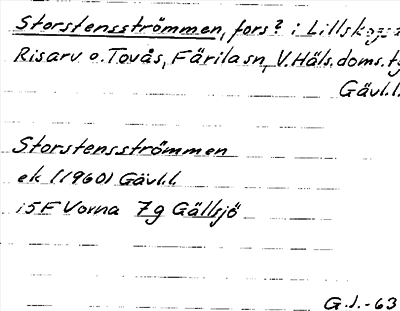 Storstensströmmen, fors? i
Risarv o. Tovås, Färila sn, V. Häls. doms.
Gävl.l.
Storstensströmmen
ek (1960) Gävl.l.
i 5F Vorna 7g Gällsjö
G.J.-63